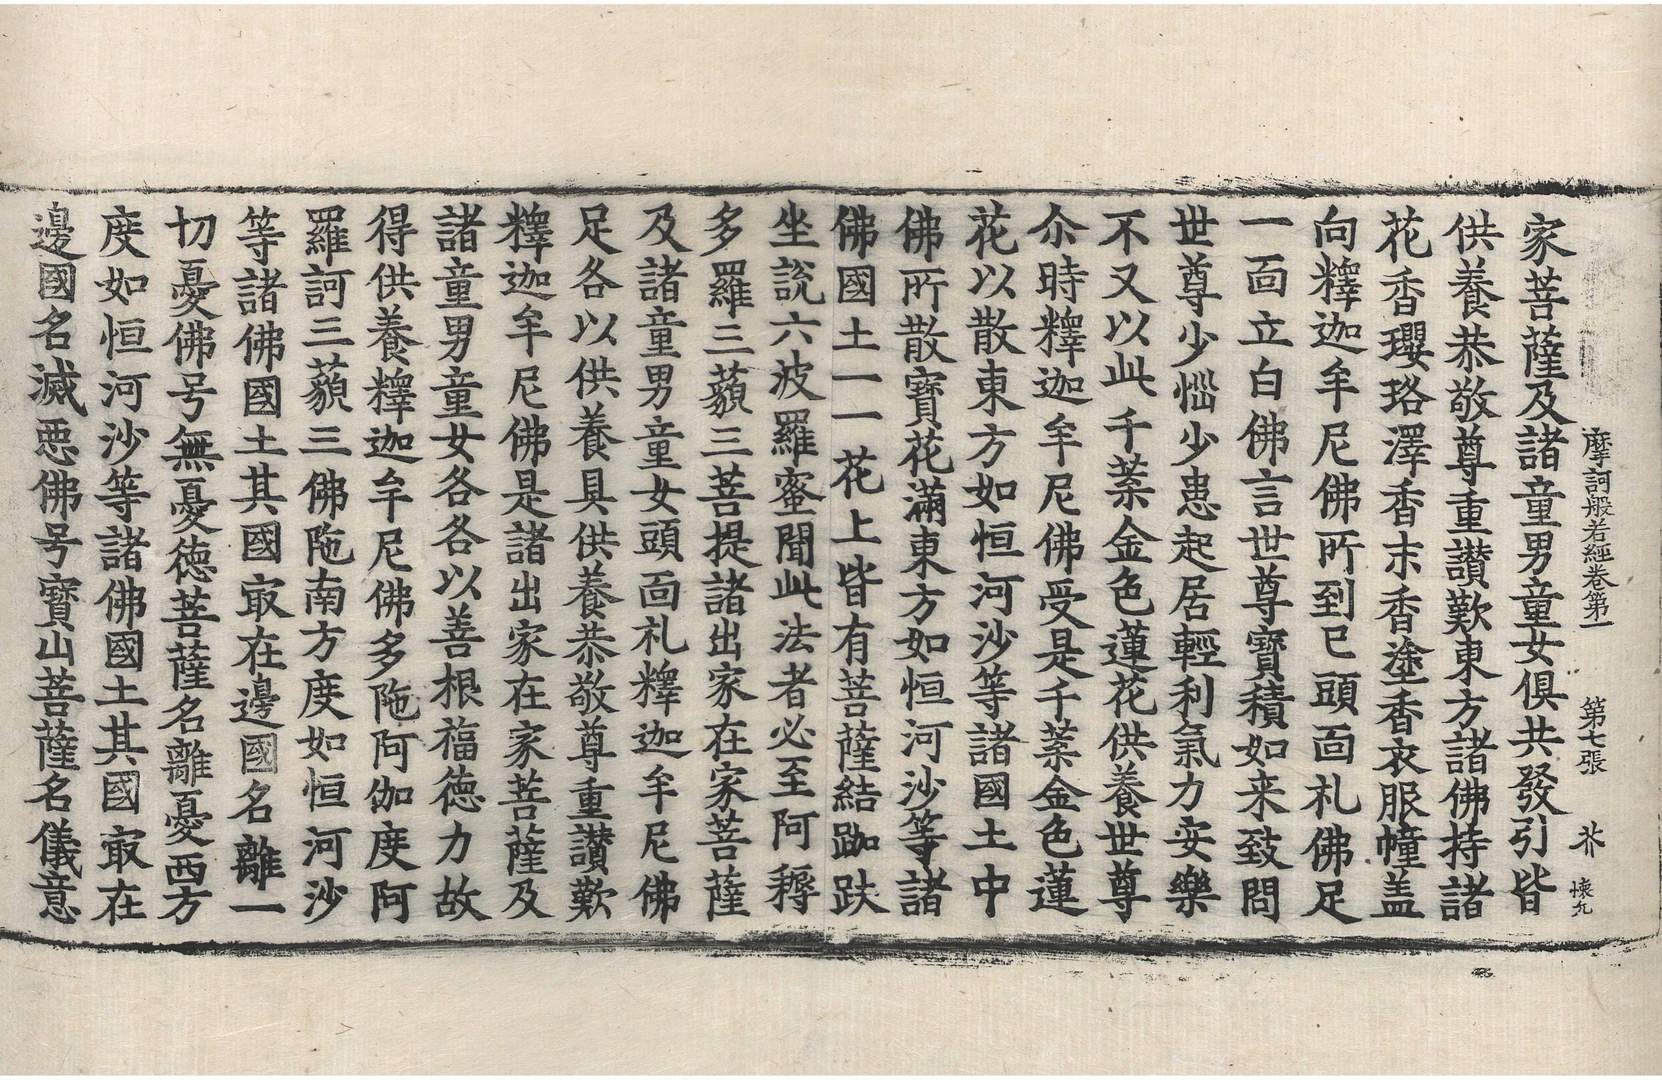 摩訶般若經卷第一 第七張 芥 懷允
家菩薩及諸童男童女俱共發引皆
供養恭敬尊重讃歎東方諸佛持諸
花香瓔珞澤香末香塗香衣服幢盖
向釋迦牟尼佛所到已頭面礼佛足
一面立白佛言世尊寶積如来致問
世尊少惱少患起居輕利氣力安樂
不又以此千葉金色蓮花供養世尊
尒時釋迦牟尼佛受是千葉金色蓮
花以散東方如恒河沙等諸國土中
佛所散寶花滿東方如恒河沙等諸
佛國土一一花上皆有菩薩結跏趺
坐說六波羅蜜聞此法者必至阿耨
多羅三藐三菩提諸出家在家菩薩
及諸童男童女頭面礼釋迦牟尼佛
足各以供養具供養恭敬尊重讃歎
釋迦牟尼佛是諸出家在家菩薩及
諸童男童女各各以善根福德力故
得供養釋迦牟尼佛多陁阿伽度阿
羅訶三藐三佛陁南方度如恒河沙
等諸佛國土其國㝡在邊國名離一
切憂佛号無憂德菩薩名離憂西方
度如恒河沙等諸佛國土其國㝡在
邊國名滅惡佛号寶山菩薩名儀意